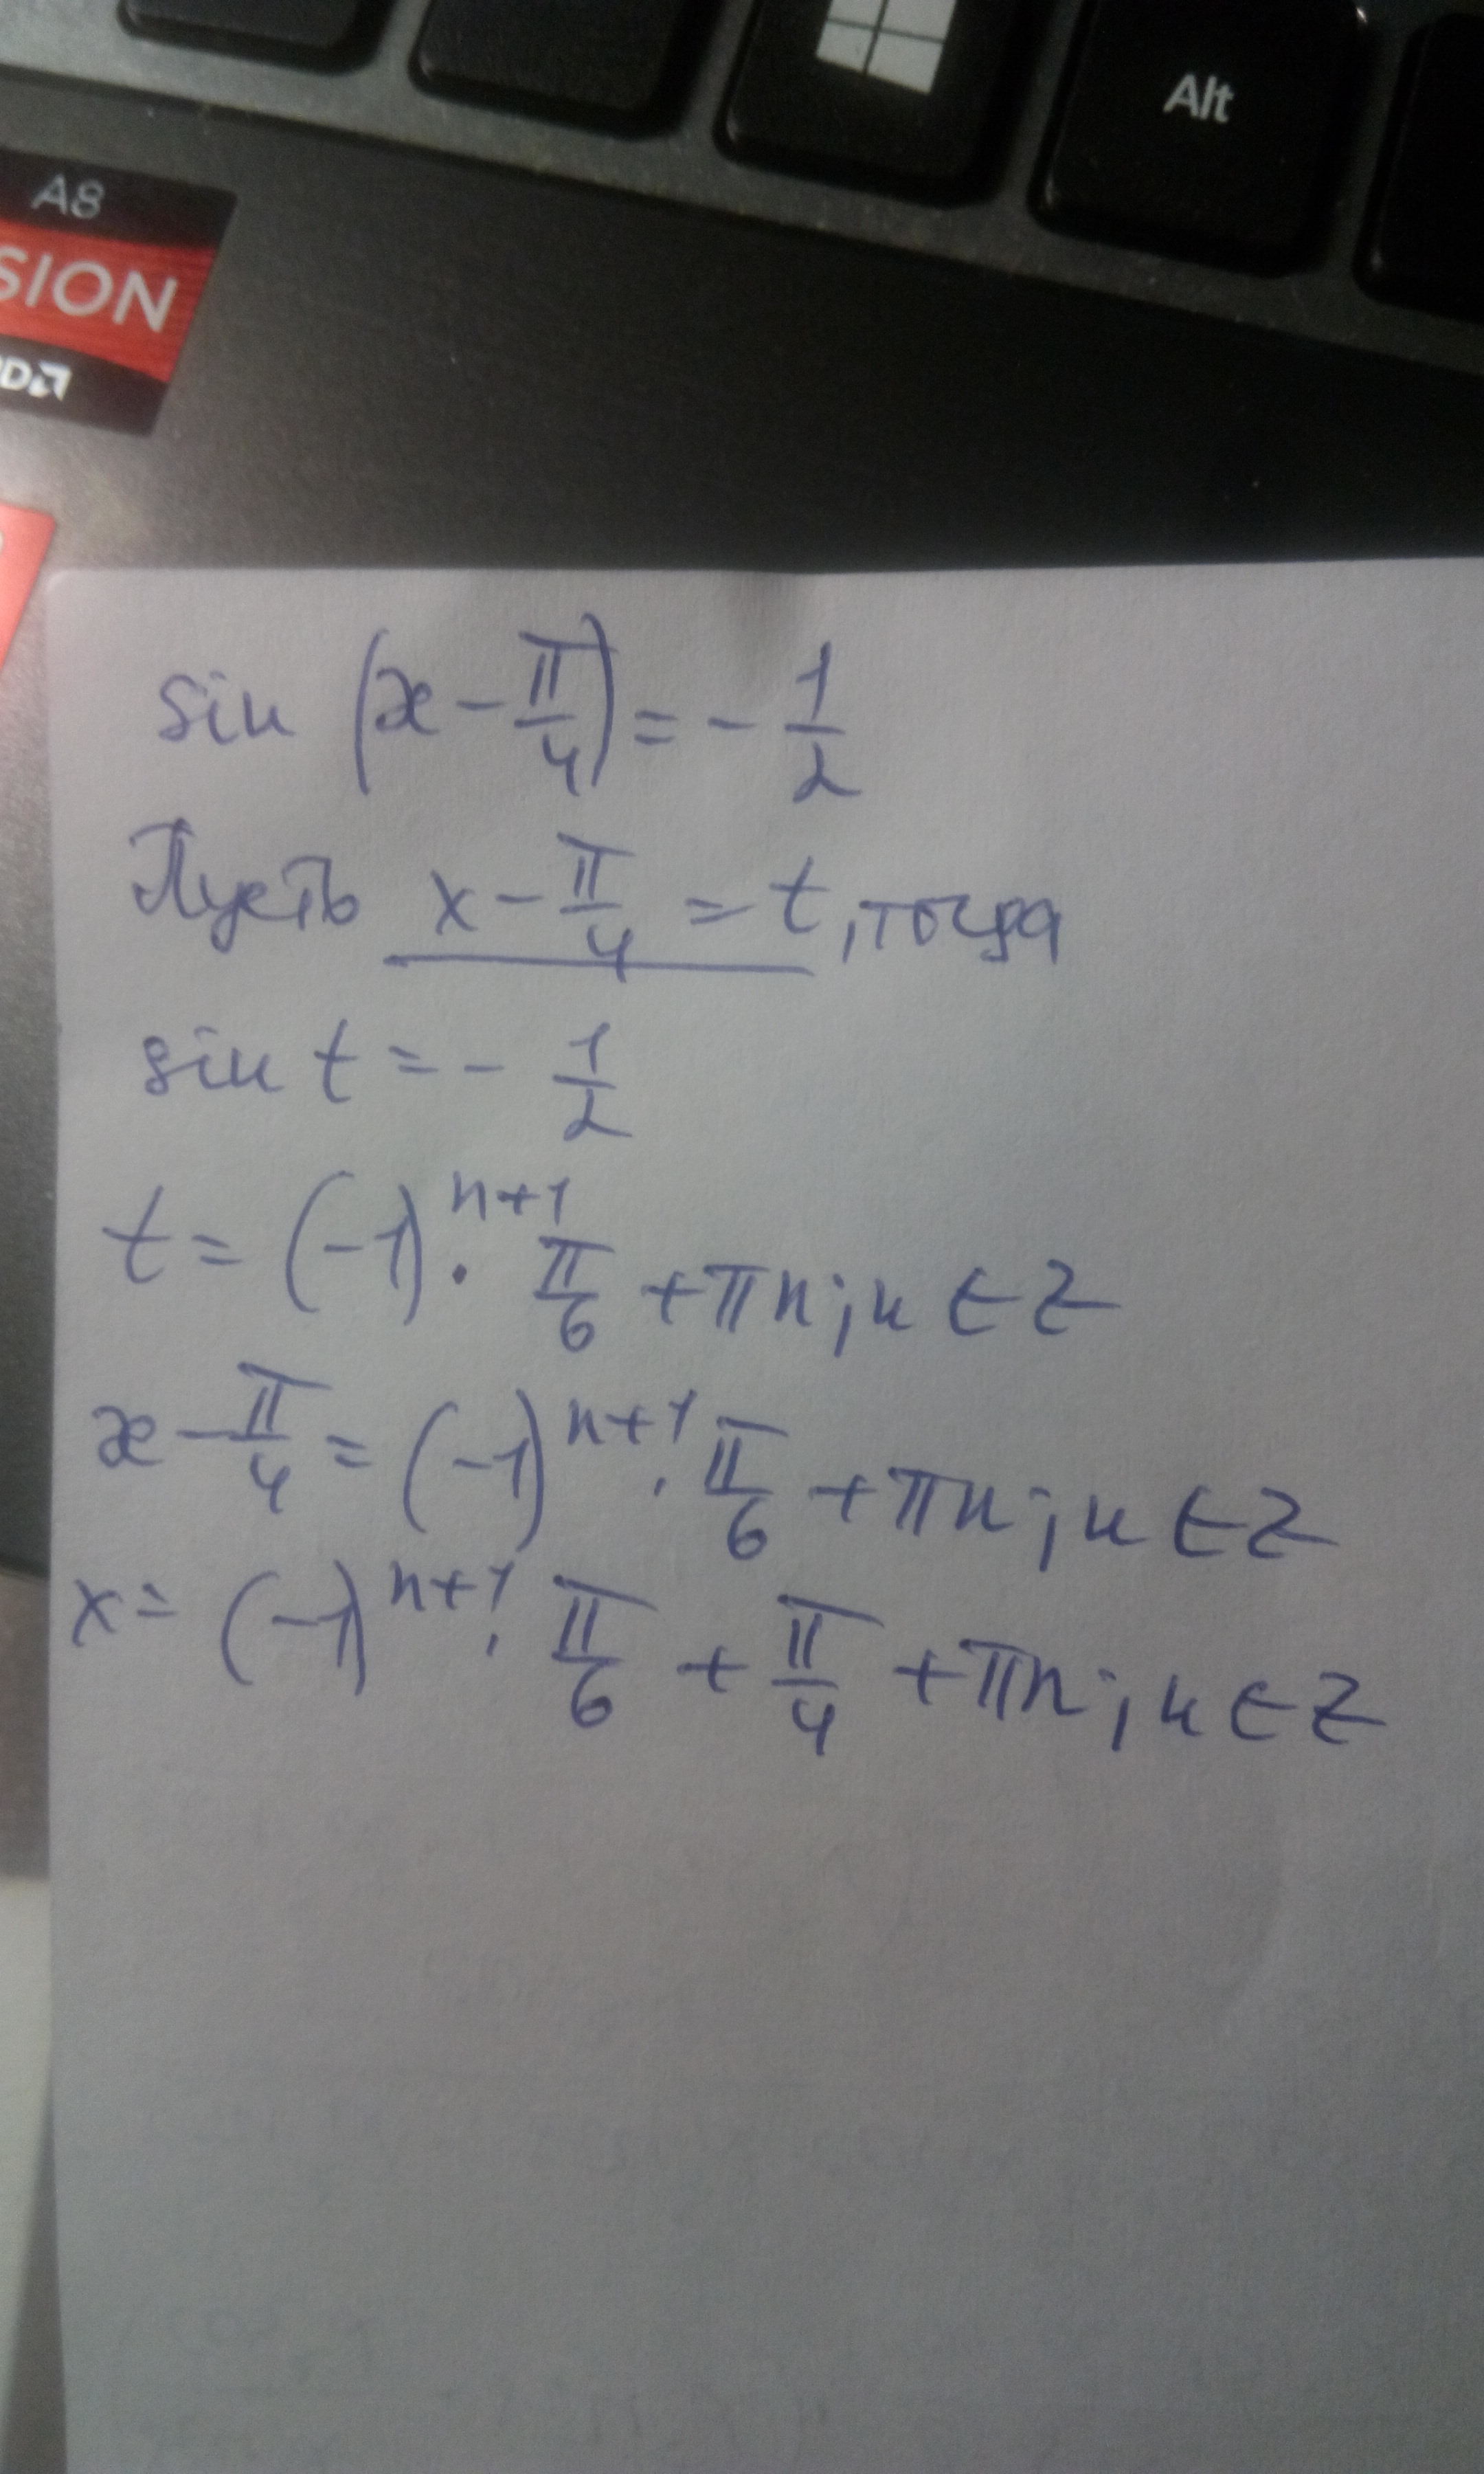 Alt
A8
SION
sin (x - π/4) = - 1/2
Пусть x - π/4 = t, тогда
sin t = - 1/2
t = (-1)^{n+1} · π/6 + πn; n ∈ Z
x - π/4 = (-1)^{n+1} · π/6 + πn; n ∈ Z
x = (-1)^{n+1} · π/6 + π/4 + πn; n ∈ Z